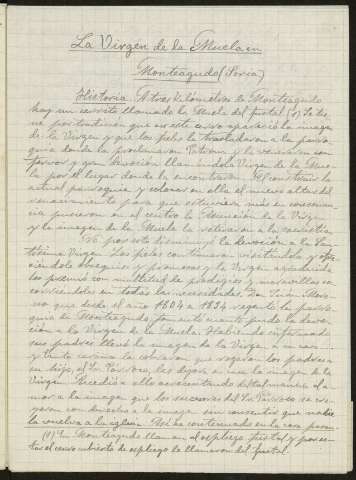 La Virgen de la Muela en
Monteagudo (Soria)
Historia. A tres kilómetros de Monteagudo
hay un cerrito llamado la Muela del fustal (1). Se tie-
ne por tradición que en este cerro apareció la imagen
de la Virgen y que los fieles la trasladaron a la parro-
quia donde la proclamaron Patrona y la veneraban con
fervor y gran devoción llamándola Virgen de la Mue-
la por el lugar donde la encontraron. Al construir la
actual parroquia y colocar en ella el nuevo altar del
renacimiento para que estuviera más en consonan-
cia pusieron en el centro la Asunción de la Virgen
y la imagen de la Muela la retiraron a la sacristía
No por esto disminuyó la devoción a la San-
tísima Virgen. Los fieles continuaron visitándola y ofre-
ciéndole obsequios y promesas y la Virgen agradecida
los premió con multitud de prodigios y maravillas so-
corriéndolos en todas las necesidades. Don Juan More-
no que desde el año 1804 a 1834 regentó la parro-
quia de Monteagudo, fomentó mucho la devo-
ción a la Virgen de la Muela. Habiendo enfermado
sus padres llevó la imagen de la Virgen a su casa
y tanto cariño la cobraron que rogaron los padres a
su hijo, el Sr. Párroco, les dejara en casa la imagen de la
Virgen. Accedió a ello acrecentándose tal manera el a-
mor a la imagen que los sucesores del Sr. Párroco se cre-
yeron con derecho a la imagen sin consentir que nadie
la vuelva a la iglesia. Así ha continuado en la casa
(1) En Monteagudo llaman al espliego fustal y por es-
tar el cerro cubierto de espliego le llamaron del fustal.